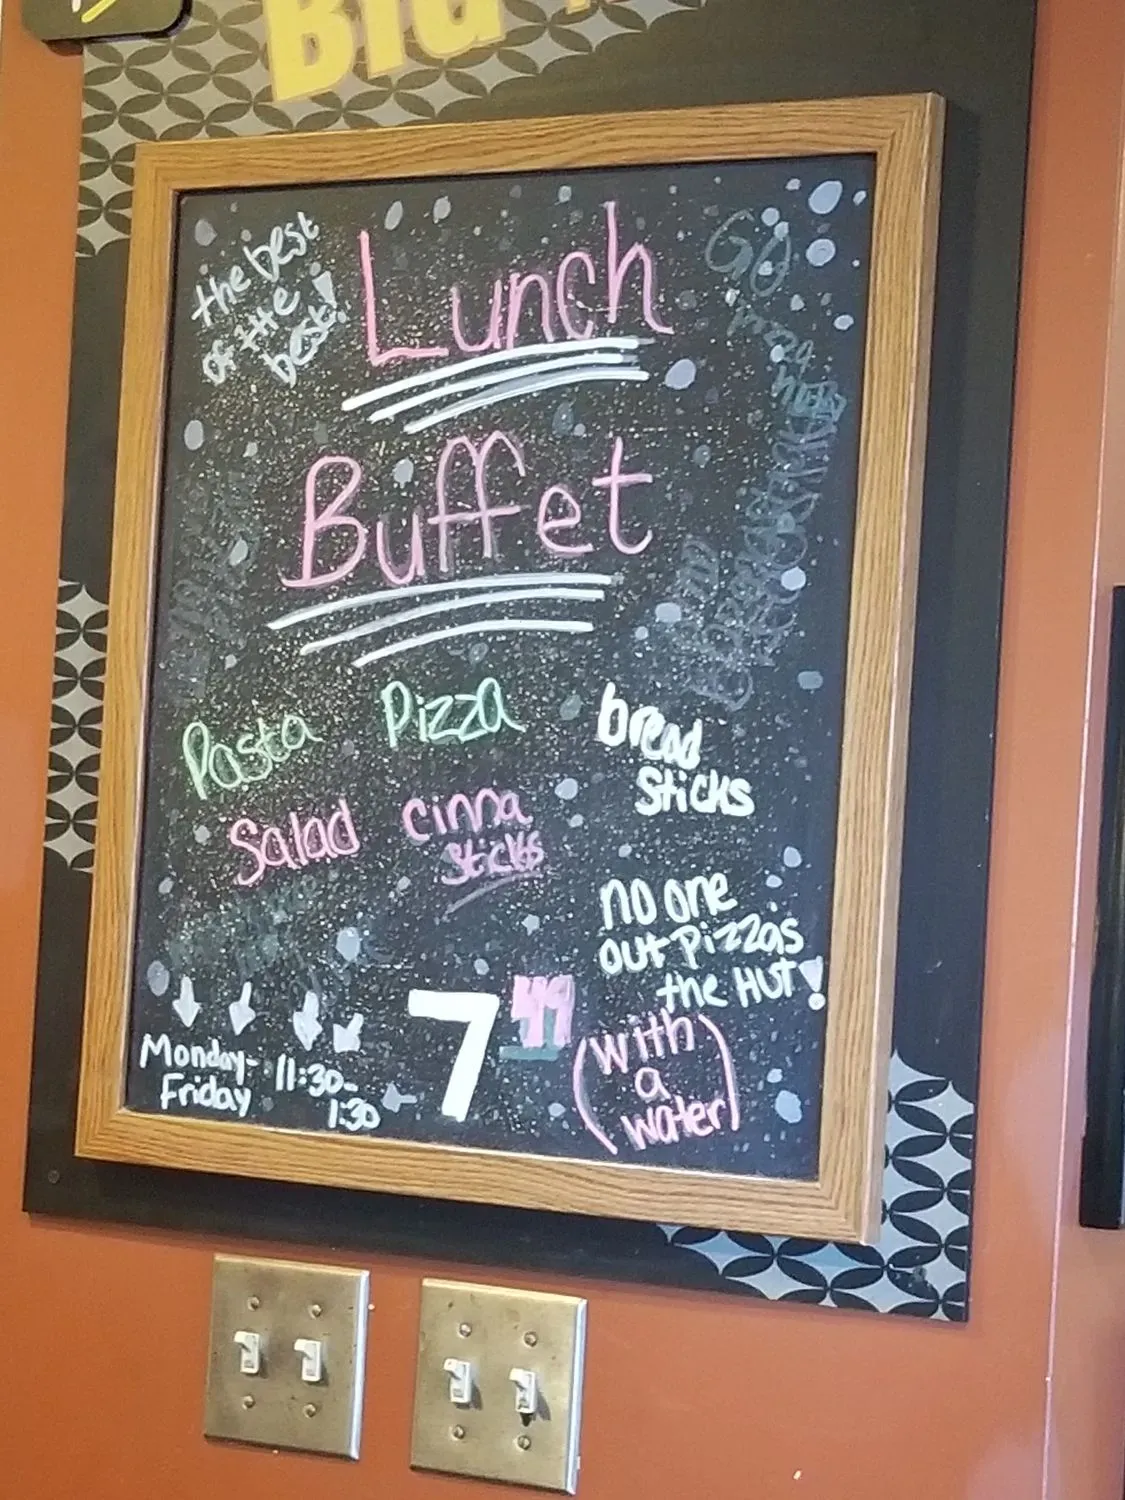 BIG
the best
of the
best!
Lunch
Buffet
GO
Pasta
Pizza
bread
Sticks
Salad
cinna
sticks
no one
out Pizzas
the HUT!
Monday-
Friday
11:30-
1:30
7 49
(with
a
water)